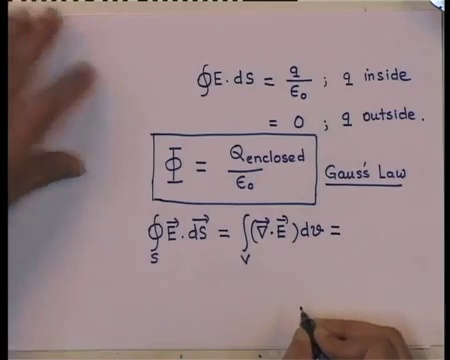 ∮E.dS = q/ε₀ ; q inside
= 0 ; q outside.
Φ = Qenclosed/ε₀ Gauss's Law
∮_S E⃗.dS⃗ = ∫_V (∇⃗.E⃗)dv =